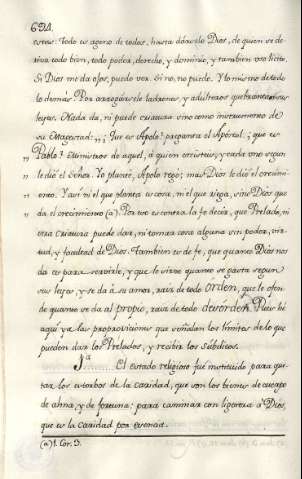 694.
estas: Todo es ageno de todos, hasta dárselo Dios, de quien se de-
riva todo bien, todo poder, derecho, y dominio, y tambien uso licito.
Si Dios me da ojos, puedo ver. Si no, no puedo. Y lo mismo de todo
lo demás. Por arrogárselo ladrones, y adulteros quebrantan sus
leyes. Nada da, ni puede criatura sino como instrumento de
su Magestad: „ ¿Que es Apolo? pregunta el Apóstol: ¿que es
„ Pablo? Ministros de aquel, á quien creisteis; y cada uno segun
„ le dió el Señor. Yo planté, Apolo regó; mas Dios le dió el crecimi-
„ ento. Y asi ni el que planta es cosa, ni el que riega, sino Dios que
da el crecimiento (a). Por eso es contra la fe decir, que Prelado, ni
otra criatura puede dar, ni tomar cosa alguna sin poder, vir-
tud, y facultad de Dios. Tambien es de fe, que quanto Dios nos
da es para servirle, y que le sirve quanto se gasta segun
sus leyes, y se da á su amor, raiz de todo orden, que le ofen-
de quanto se da al propio, raiz de todo desorden. Pues hé
aquí ya las proposiciones que señalan los limites de lo que
pueden dar los Prelados, y recibir los Subditos.
1ª El estado religioso fué instituido para qui-
tar los estorbos de la caridad, que son los bienes de cuerpo
de alma, y de fortuna: para caminar con ligereza á Dios,
que es la caridad por esencia.
(a) 1. Cor. 3.